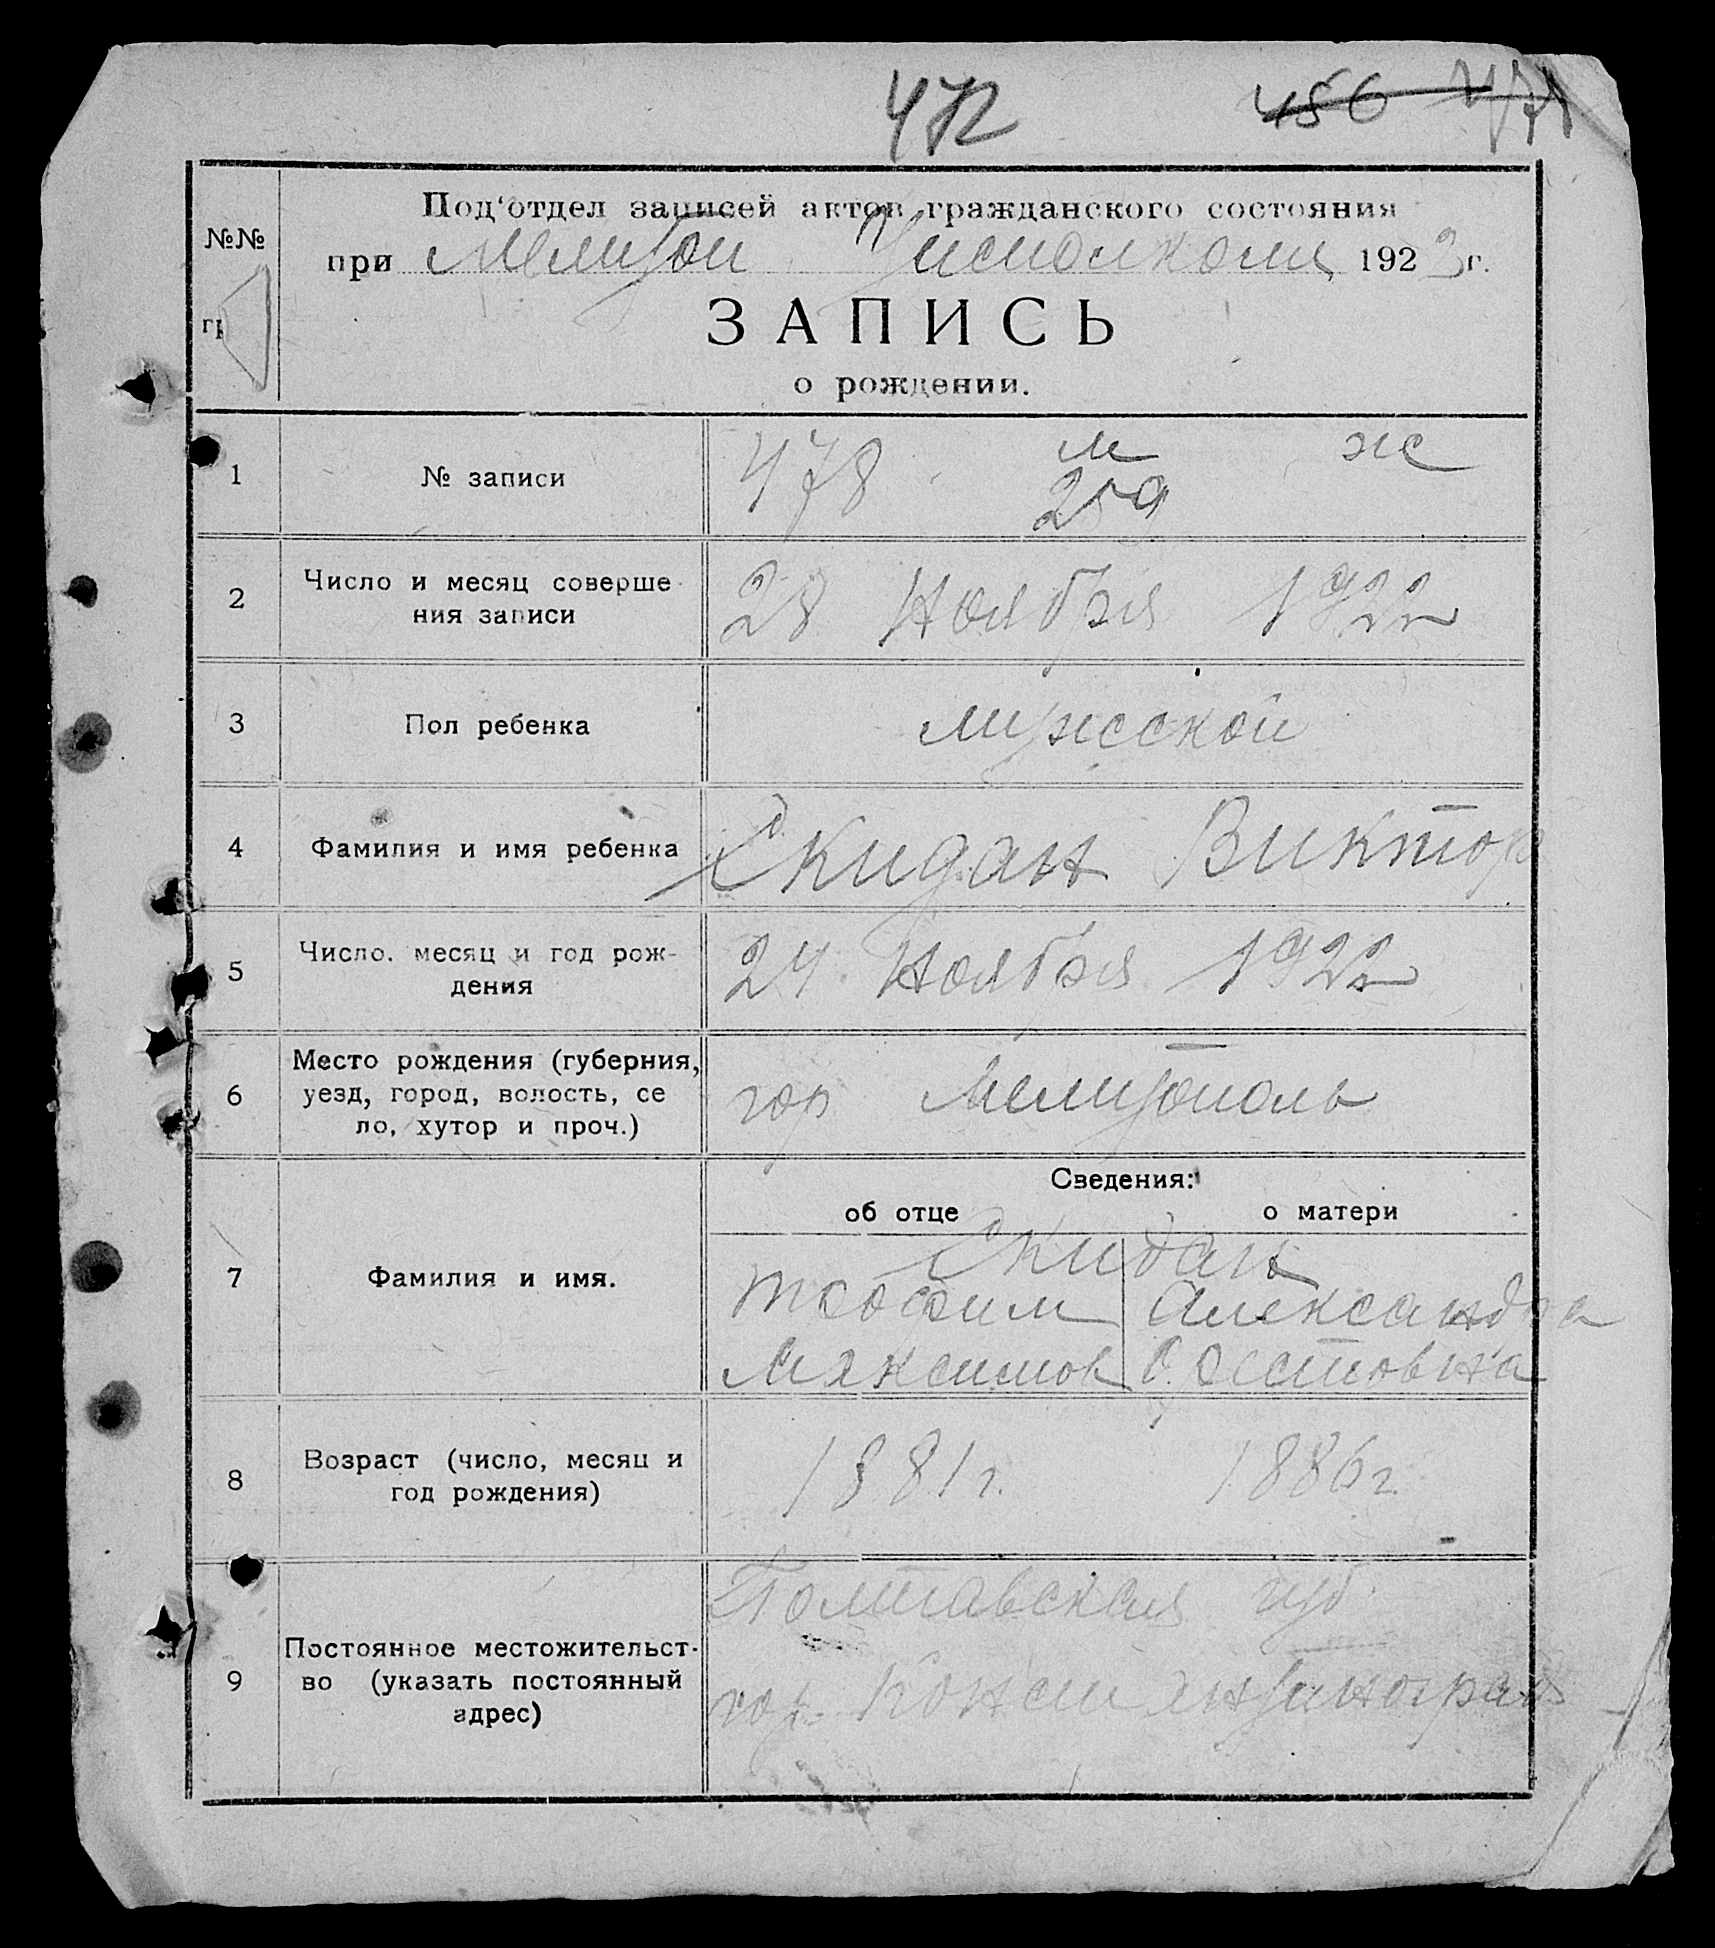 472
456 471
Под‘отдел записей актов гражданского состояния
№№
при Мелитоп Уисполкоми 1923г.
гр
ЗАПИСЬ
о рождении.
1
№ записи
478 м ж
259
2
Число и месяц соверше
ния записи
28 Ноября 1922
3
Пол ребенка
мужской
4
Фамилия и имя ребенка
Скидан Виктор
5
Число. месяц и год рож-
дения
24 Ноября 1922
6
Место рождения (губерния,
уезд, город, волость, се
ло, хутор и проч.)
гор Мелитополь
Сведения:
об отце
о матери
7
Фамилия и имя.
Скидан
Трофим Александра
Максимов
8
Возраст (число, месяц и
год рождения)
1881г. 1886г.
9
Постоянное местожительст-
во (указать постоянный
адрес)
Полтавская губ.
гор. Константиноград